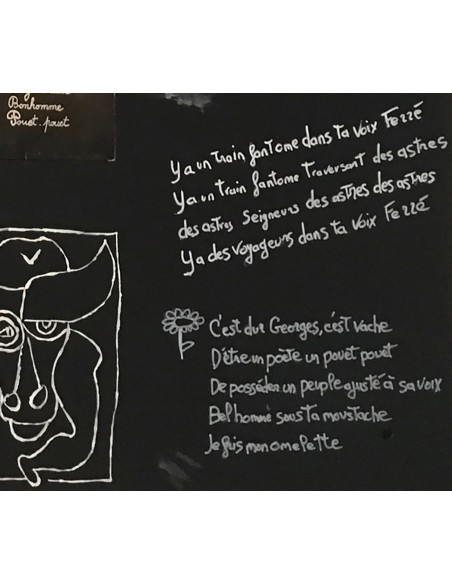 Bonhomme
Pouet. pouet
Y a un train fantome dans ta voix Ferré
Y a un train fantome traversant des astres
des astres seigneurs des astres des astres
Y a des voyageurs dans ta voix Ferré
C'est dur Georges, c'est vache
D'être un poète un pouet pouet
De posséder un peuple ajusté à sa voix
Bel homme sous ta moustache
Je fais mon omelette